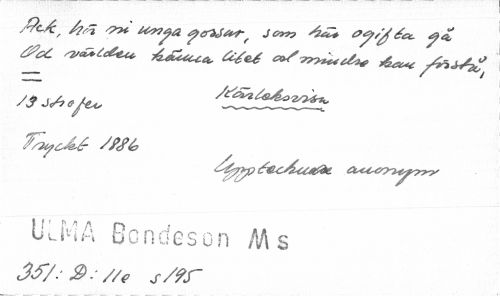 Ack, hör ni unga gossar, som här ogifta gå
Od världen känna litet ol mindre kan förstå,
=
13 strofer
Kärleksvisa
Tryckt 1886
Upptecknare anonym
ULMA Bondeson Ms
351: D: 11e s 195